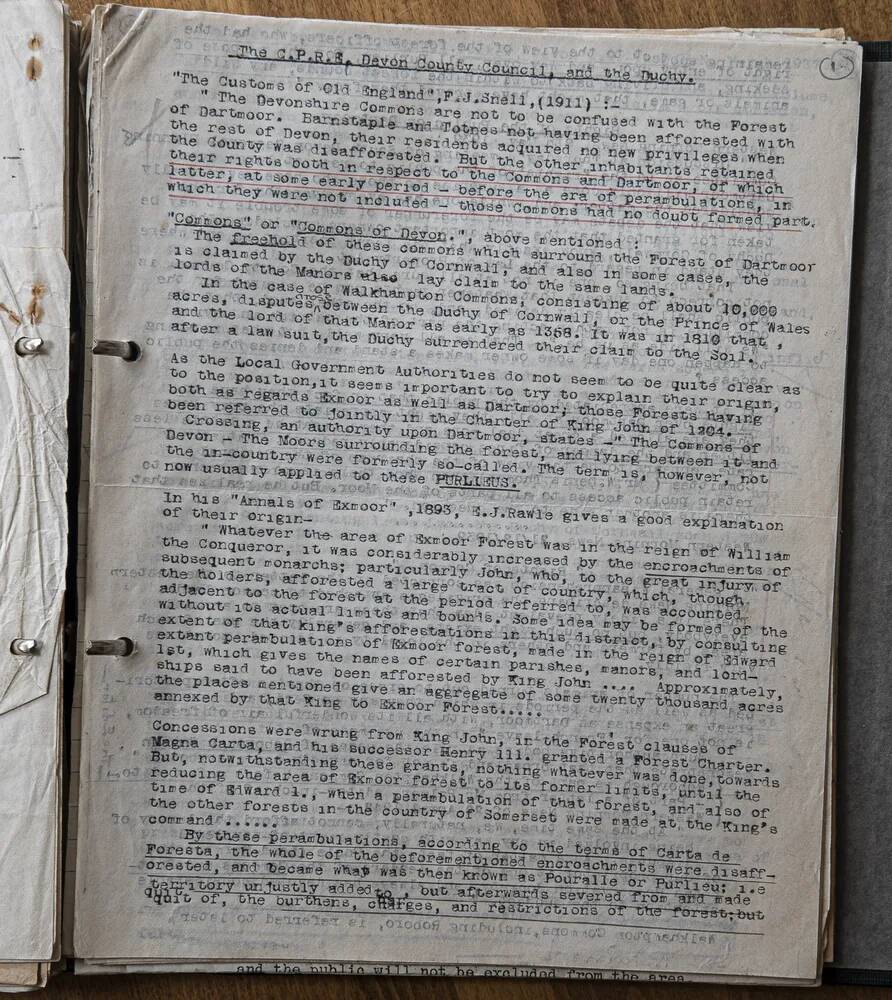 1.
The C.P.R.E, Devon County Council, and the Duchy.
"The Customs of Old England",F.J.Snell,(1911) :-
" The Devonshire Commons are not to be confused with the Forest
of Dartmoor. Barnstaple and Totnes not having been afforested with
the rest of Devon, their residents acquired no new privileges when
the County was disafforested. But the other inhabitants retained
their rights both in respect to the Commons and Dartmoor, of which
latter, at some early period - before the era of perambulations, in
which they were not included - those Commons had no doubt formed part.
"Commons" or "Commons of Devon.", above mentioned :
The freehold of these commons which surround the Forest of Dartmoor
is claimed by the Duchy of Cornwall, and also in some cases, the
lords of the Manors also lay claim to the same lands.
In the case of Walkhampton Commons, consisting of about 10,000
acres, disputes arose between the Duchy of Cornwall, or the Prince of Wales
and the lord of that Manor as early as 1368. It was in 1810 that ,
after a law suit,the Duchy surrendered their claim to the Soil.
As the Local Government Authorities do not seem to be quite clear as
to the position,it seems important to try to explain their origin,
both as regards Exmoor as well as Dartmoor; those Forests having
been referred to jointly in the Charter of King John of 1204.
Crossing, an authority upon Dartmoor, states -" The Commons of
Devon - The Moors surrounding the forest, and lying between it and
the in-country were formerly so-called. The term is, however, not
now usually applied to these PURLIEUS.
In his "Annals of Exmoor" ,1893, E.J.Rawle gives a good explanation
of their origin-
" Whatever the area of Exmoor Forest was in the reign of William
the Conqueror, it was considerably increased by the encroachments of
subsequent monarchs; particularly John, who, to the great injury of
the holders, afforested a large tract of country, which, though
adjacent to the forest at the period referred to, was accounted
without its actual limits and bounds. Some idea may be formed of the
extent of that king's afforestations in this district, by consulting
extant perambulations of Exmoor forest, made in the reign of Edward
1st, which gives the names of certain parishes, manors, and lord-
ships said to have been afforested by King John .... Approximately,
the places mentioned give an aggregate of some twenty thousand acres
annexed by that King to Exmoor Forest.....
Concessions were wrung from King John, in the Forest clauses of
Magna Carta, and his successor Henry 111. granted a Forest Charter.
But, notwithstanding these grants, nothing whatever was done,towards
reducing the area of Exmoor forest to its former limits, until the
time of Edward 1., when a perambulation of that forest, and also of
the other forests in the country of Somerset were made at the King's
command .......
By these perambulations, according to the terms of Carta de
Foresta, the whole of the beforementioned encroachments were disaff-
orested, and became what was then known as Pouralle or Purlieu; i.e
territory unjustly added to , but afterwards severed from and made
quit of, the burthens, charges, and restrictions of the forest;but
and the public will not be excluded from the area